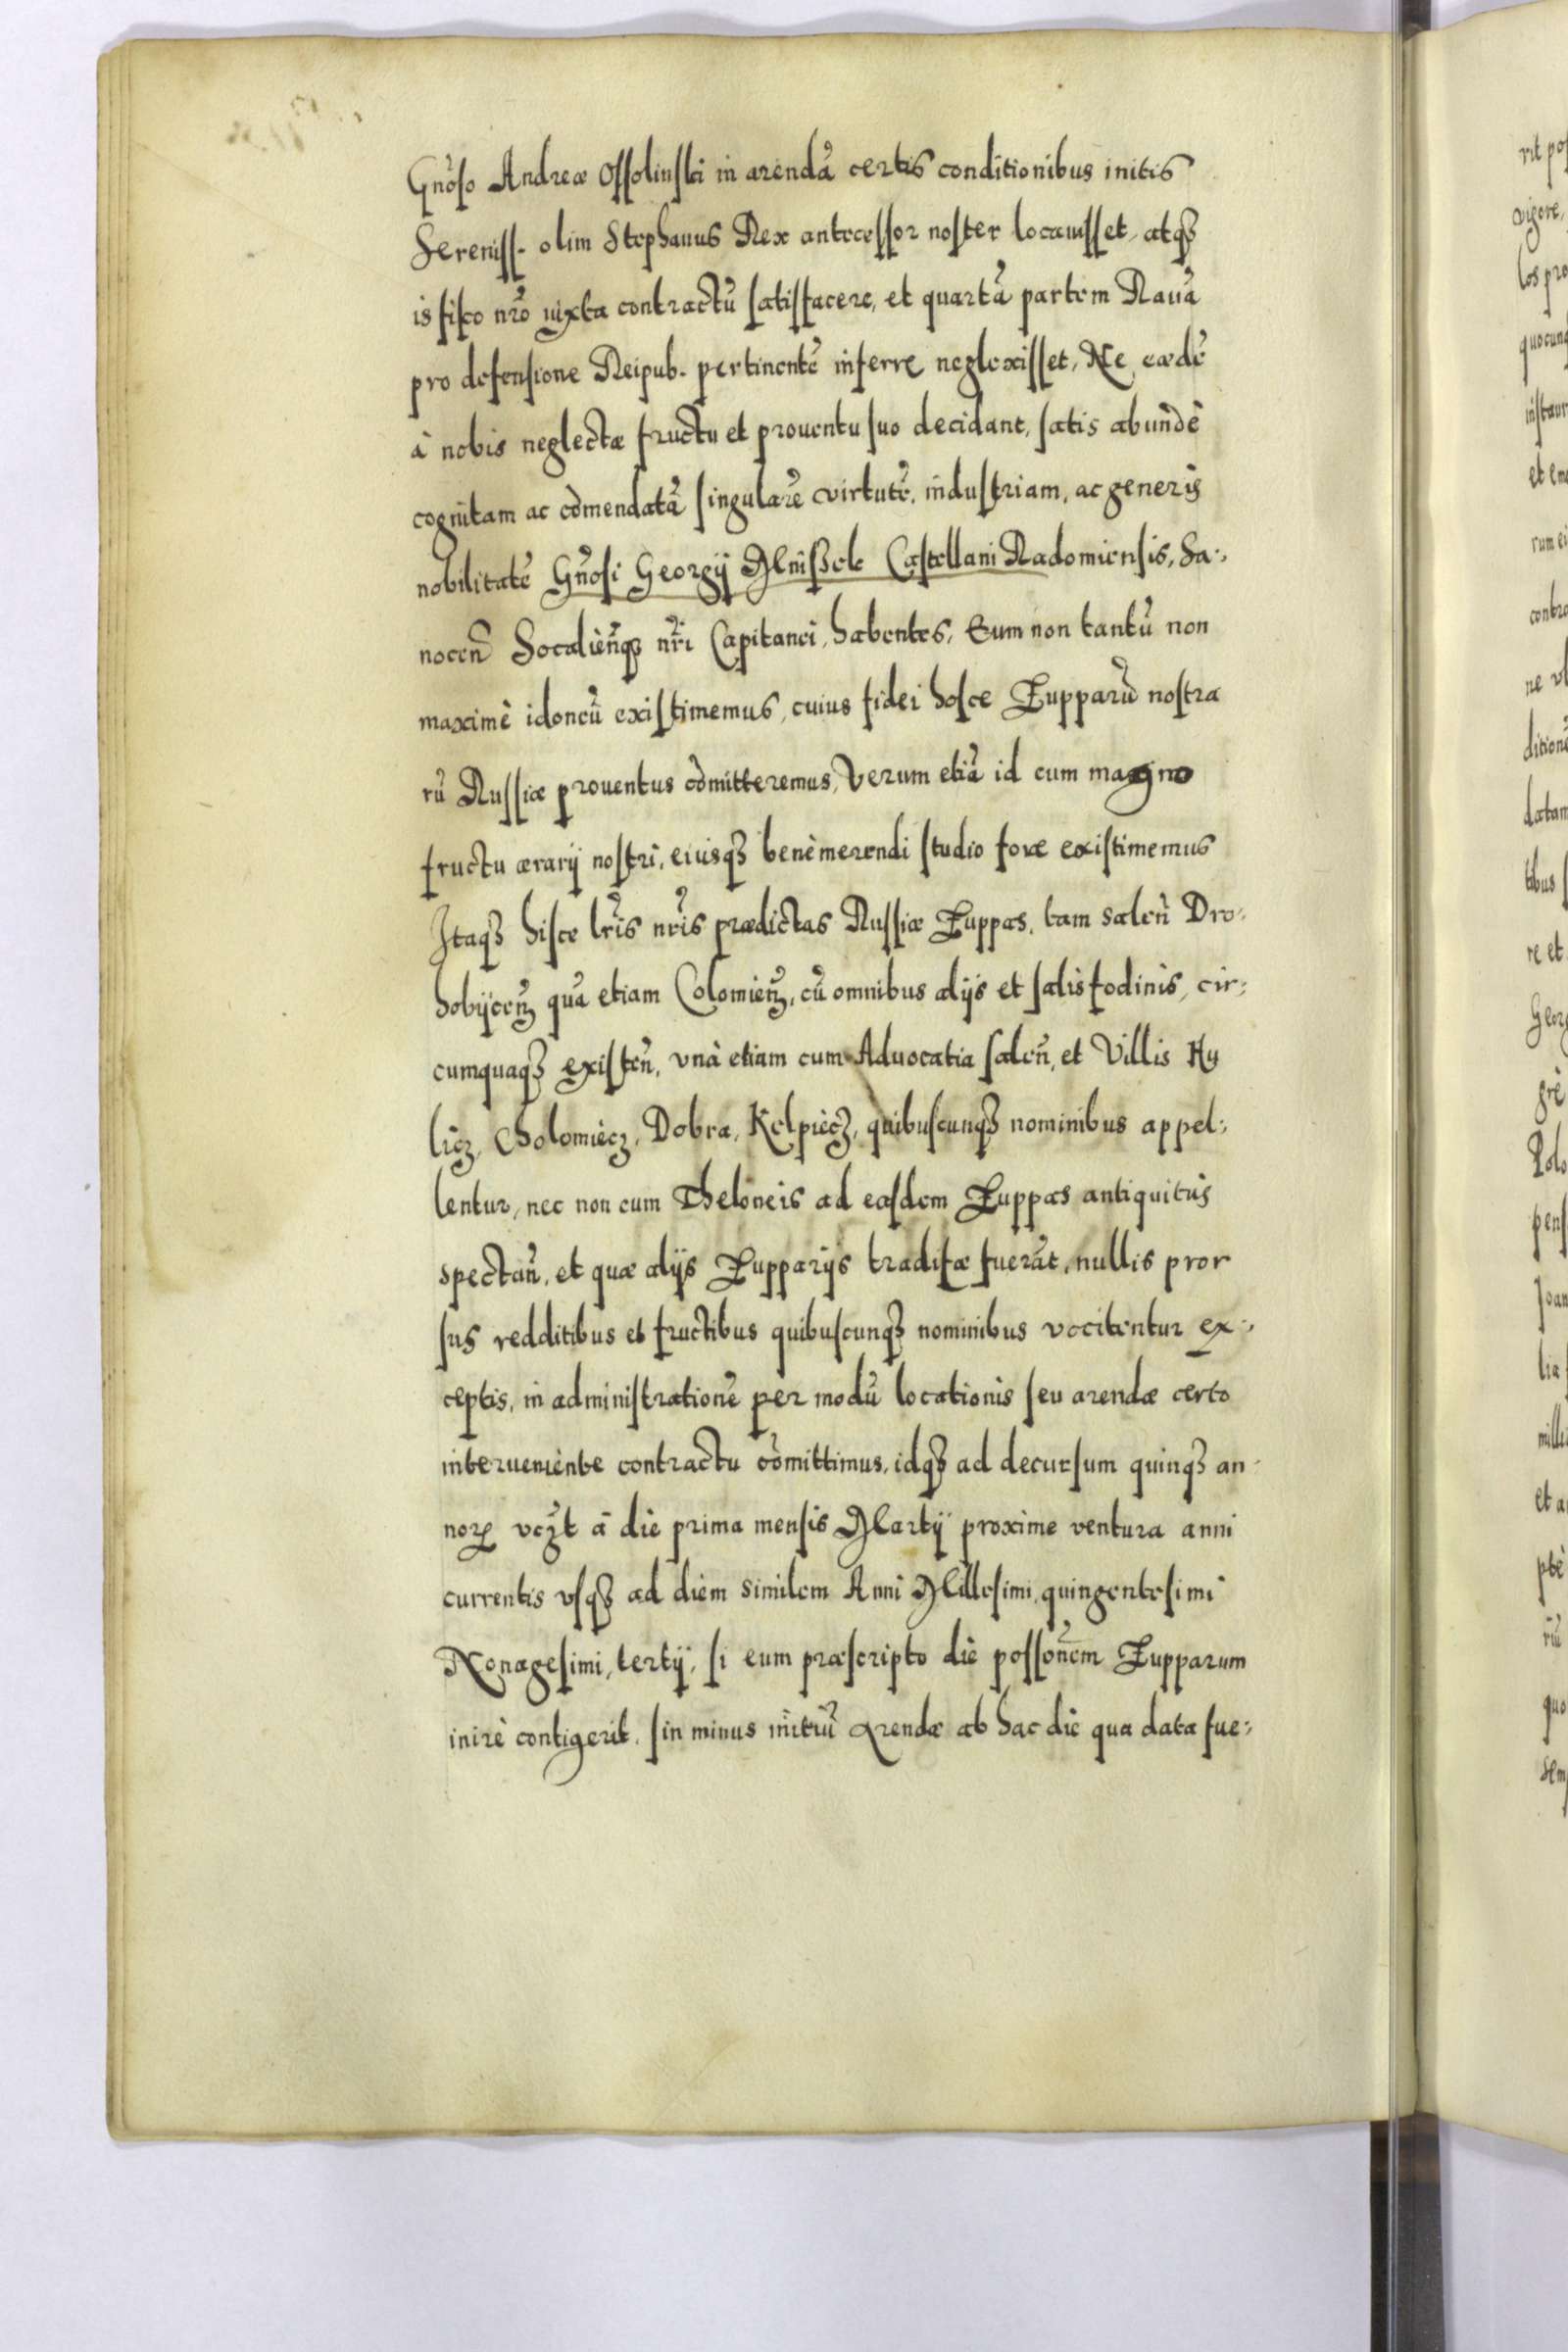 Gn̄oso Andreæ Ossolinski in arendā certis conditionibus initis
Sereniss. olim Stephanus Rex antecessor noster locauisset, atq̄
is fisco nr̄o iuxta contractū satisfacere, et quartā partem Rauā
pro defensione Reipub. pertinentē inferre neglexisset, Ne eædē
à nobis neglectæ fructu et prouentu suo decidant, satis abundè
cognitam ac cōmendatā singularē virtutē, industriam, ac generis
nobilitatē Gn̄osi Georgij Mnissek Castellani Radomiensis, Sa-
nocen̄ Socalien̄q̄ nr̄i Capitanei, habentes, Eum non tantū non
maximè idoneū existimemus, cuius fidei hosce Zupparū nostra
rū Russiæ prouentus cōmitteremus, Verum etiā id cum magno
fructu ærarij nostri, eiusq̄ benèmerendi studio fore existimemus
Itaq̄ hisce lr̄is nr̄is prædictas Russiæ Zuppas, tam salen̄ Dro-
hobijcen̄ quā etiam Colomien̄, cū omnibus alijs et salisfodinis, cir-
cumquaq̄ existen̄, vnà etiam cum Aduocatia salen̄, et Villis Hu
licz, Cholomiecz, Dobra, Kelpiecz, quibuscunq̄ nominibus appel-
lentur, nec non cum Theloneis ad easdem Zuppas antiquitùs
spectan̄, et quæ alijs Zupparijs traditæ fuerāt, nullis pror
sus redditibus et fructibus quibuscunq̄ nominibus vocitentur ex-
ceptis, in administrationē per modū locationis seu arendæ certo
interueniente contractu cōmittimus, idq̄ ad decursum quinq̄ an-
norꝝ vcꝫt à die prima mensis Martij proxime ventura anni
currentis vsq̄ ad diem similem Anni Millesimi quingentesimi
Nonagesimi, tertij, si eum præscripto die possōnem Zupparum
inire contigerit, sin minus initiū Arendæ ab hac die qua data fue-